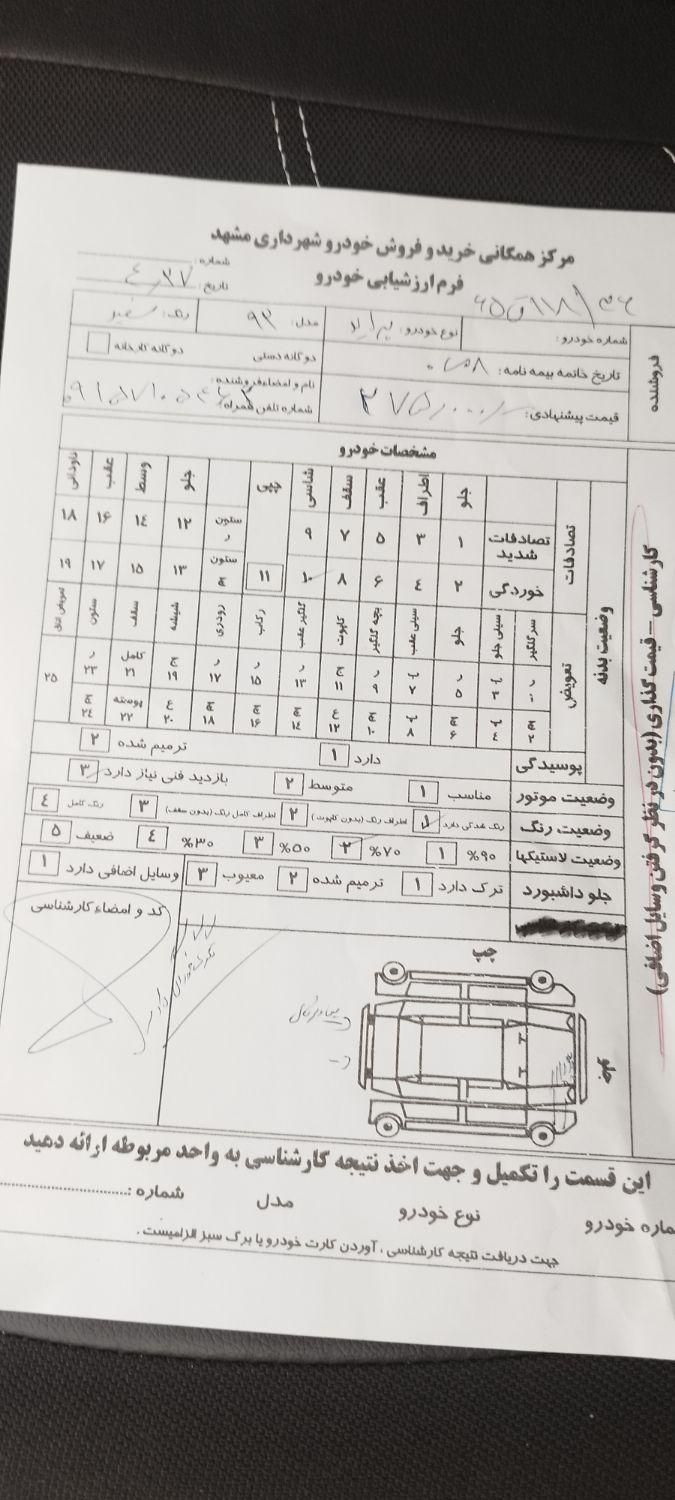 مرکز همگانی خرید و فروش خودرو شهرداری مشهد
فرم ارزشیابی خودرو
شماره:
تاریخ: ۴٫۲۷
فروشنده
شماره خودرو:
نوع خودرو: پراید
مدل: ۹۲
رنگ: سفید
تاریخ خاتمه بیمه نامه:
دوگانه دستی
دوگانه کارخانه
قیمت پیشنهادی:
نام و امضاء فروشنده:
شماره تلفن همراه:
کارشناسی - قیمت گذاری (بدون در نظر گرفتن وسایل اضافی)
مشخصات خودرو
وضعیت بدنه
تصادفات
جلو اطراف عقب سقف شاسی جلو وسط عقب ناودانی
تصادفات شدید ۱ ۳ ۵ ۷ ۹ ستون ر ۱۲ ۱۴ ۱۶ ۱۸
خوردگی ۲ ۴ ۶ ۸ ۱۰ ۱۱ ستون چ ۱۳ ۱۵ ۱۷ ۱۹
تعویض
سر گلگیر سینی جلو جلو سینی عقب بچه گلگیر کاپوت گلگیر عقب رکاب رودری شیشه سقف ستون تعویض اتاق
ر ۱ ۳ ر ۵ ۷ ر ۹ ج ۱۱ ر ۱۳ ر ۱۵ ر ۱۷ ج ۱۹ کامل ۲۱ ر ۲۳ ۲۵
چ ۲ ۴ چ ۶ ۸ چ ۱۰ ع ۱۲ چ ۱۴ چ ۱۶ چ ۱۸ ع ۲۰ پوسته ۲۲ چ ۲۴
پوسیدگی دارد ۱ ترمیم شده ۲
وضعیت موتور مناسب ۱ متوسط ۲ بازدید فنی نیاز دارد ۳
وضعیت رنگ رنگ شدگی دارد ۱ اطراف رنگ (بدون کاپوت) ۲ اطراف کامل رنگ (بدون سقف) ۳ رنگ کامل ۴
وضعیت لاستیکها ۹۰% ۱ ۷۰% ۲ ۵۰% ۳ ۳۰% ۴ ضعیف ۵
جلو داشبورد ترک دارد ۱ ترمیم شده ۲ معیوب ۳ وسایل اضافی دارد ۱
کد و امضاء کارشناسی
چپ
این قسمت را تکمیل و جهت اخذ نتیجه کارشناسی به واحد مربوطه ارائه دهید
ماره خودرو نوع خودرو مدل شماره:
جهت دریافت نتیجه کارشناسی، آوردن کارت خودرو یا برگ سبز الزامیست.